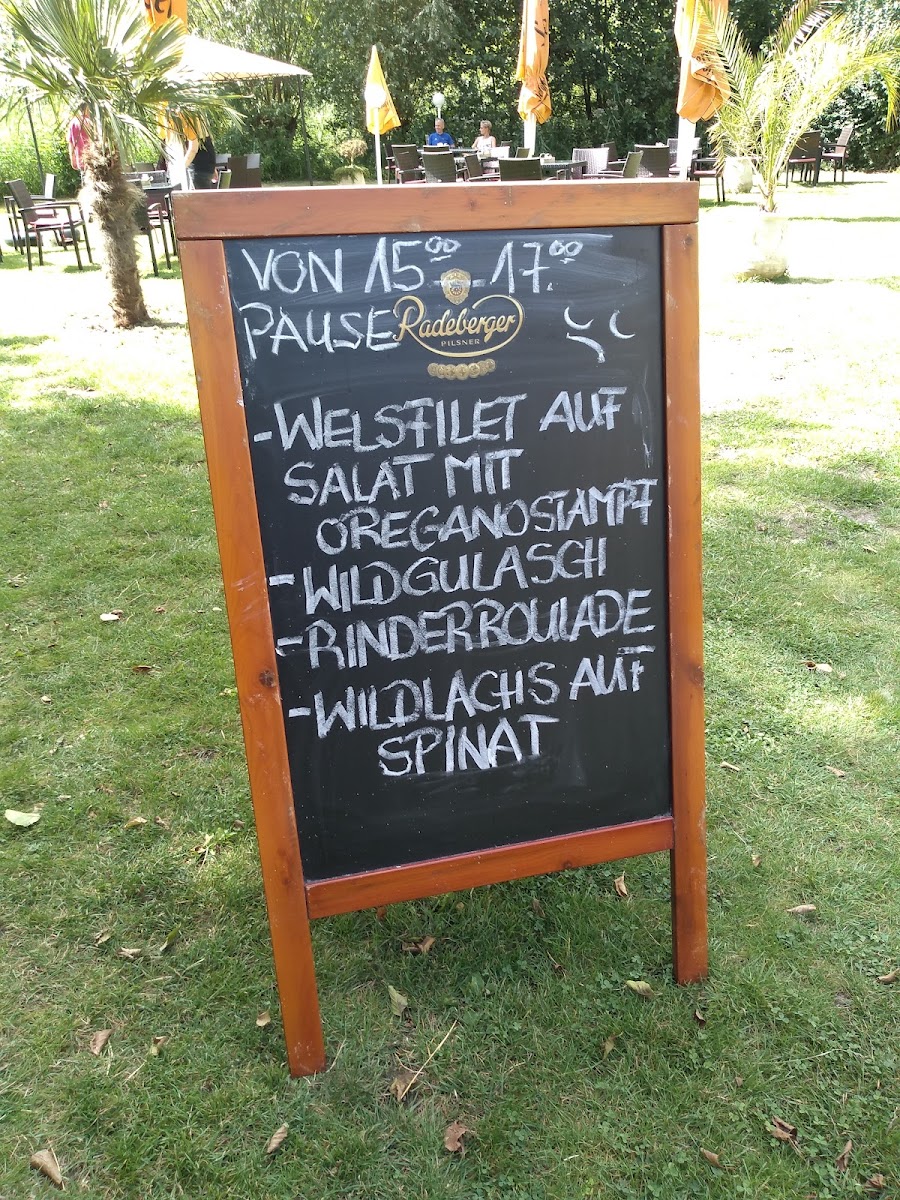 VON 15⁰⁰-17⁰⁰
PAUSE
Radeberger
PILSNER
-WELSFILET AUF
SALAT MIT
OREGANOSTAMPF
-WILDGULASCH
-RINDERROULADE
-WILDLACHS AUF
SPINAT